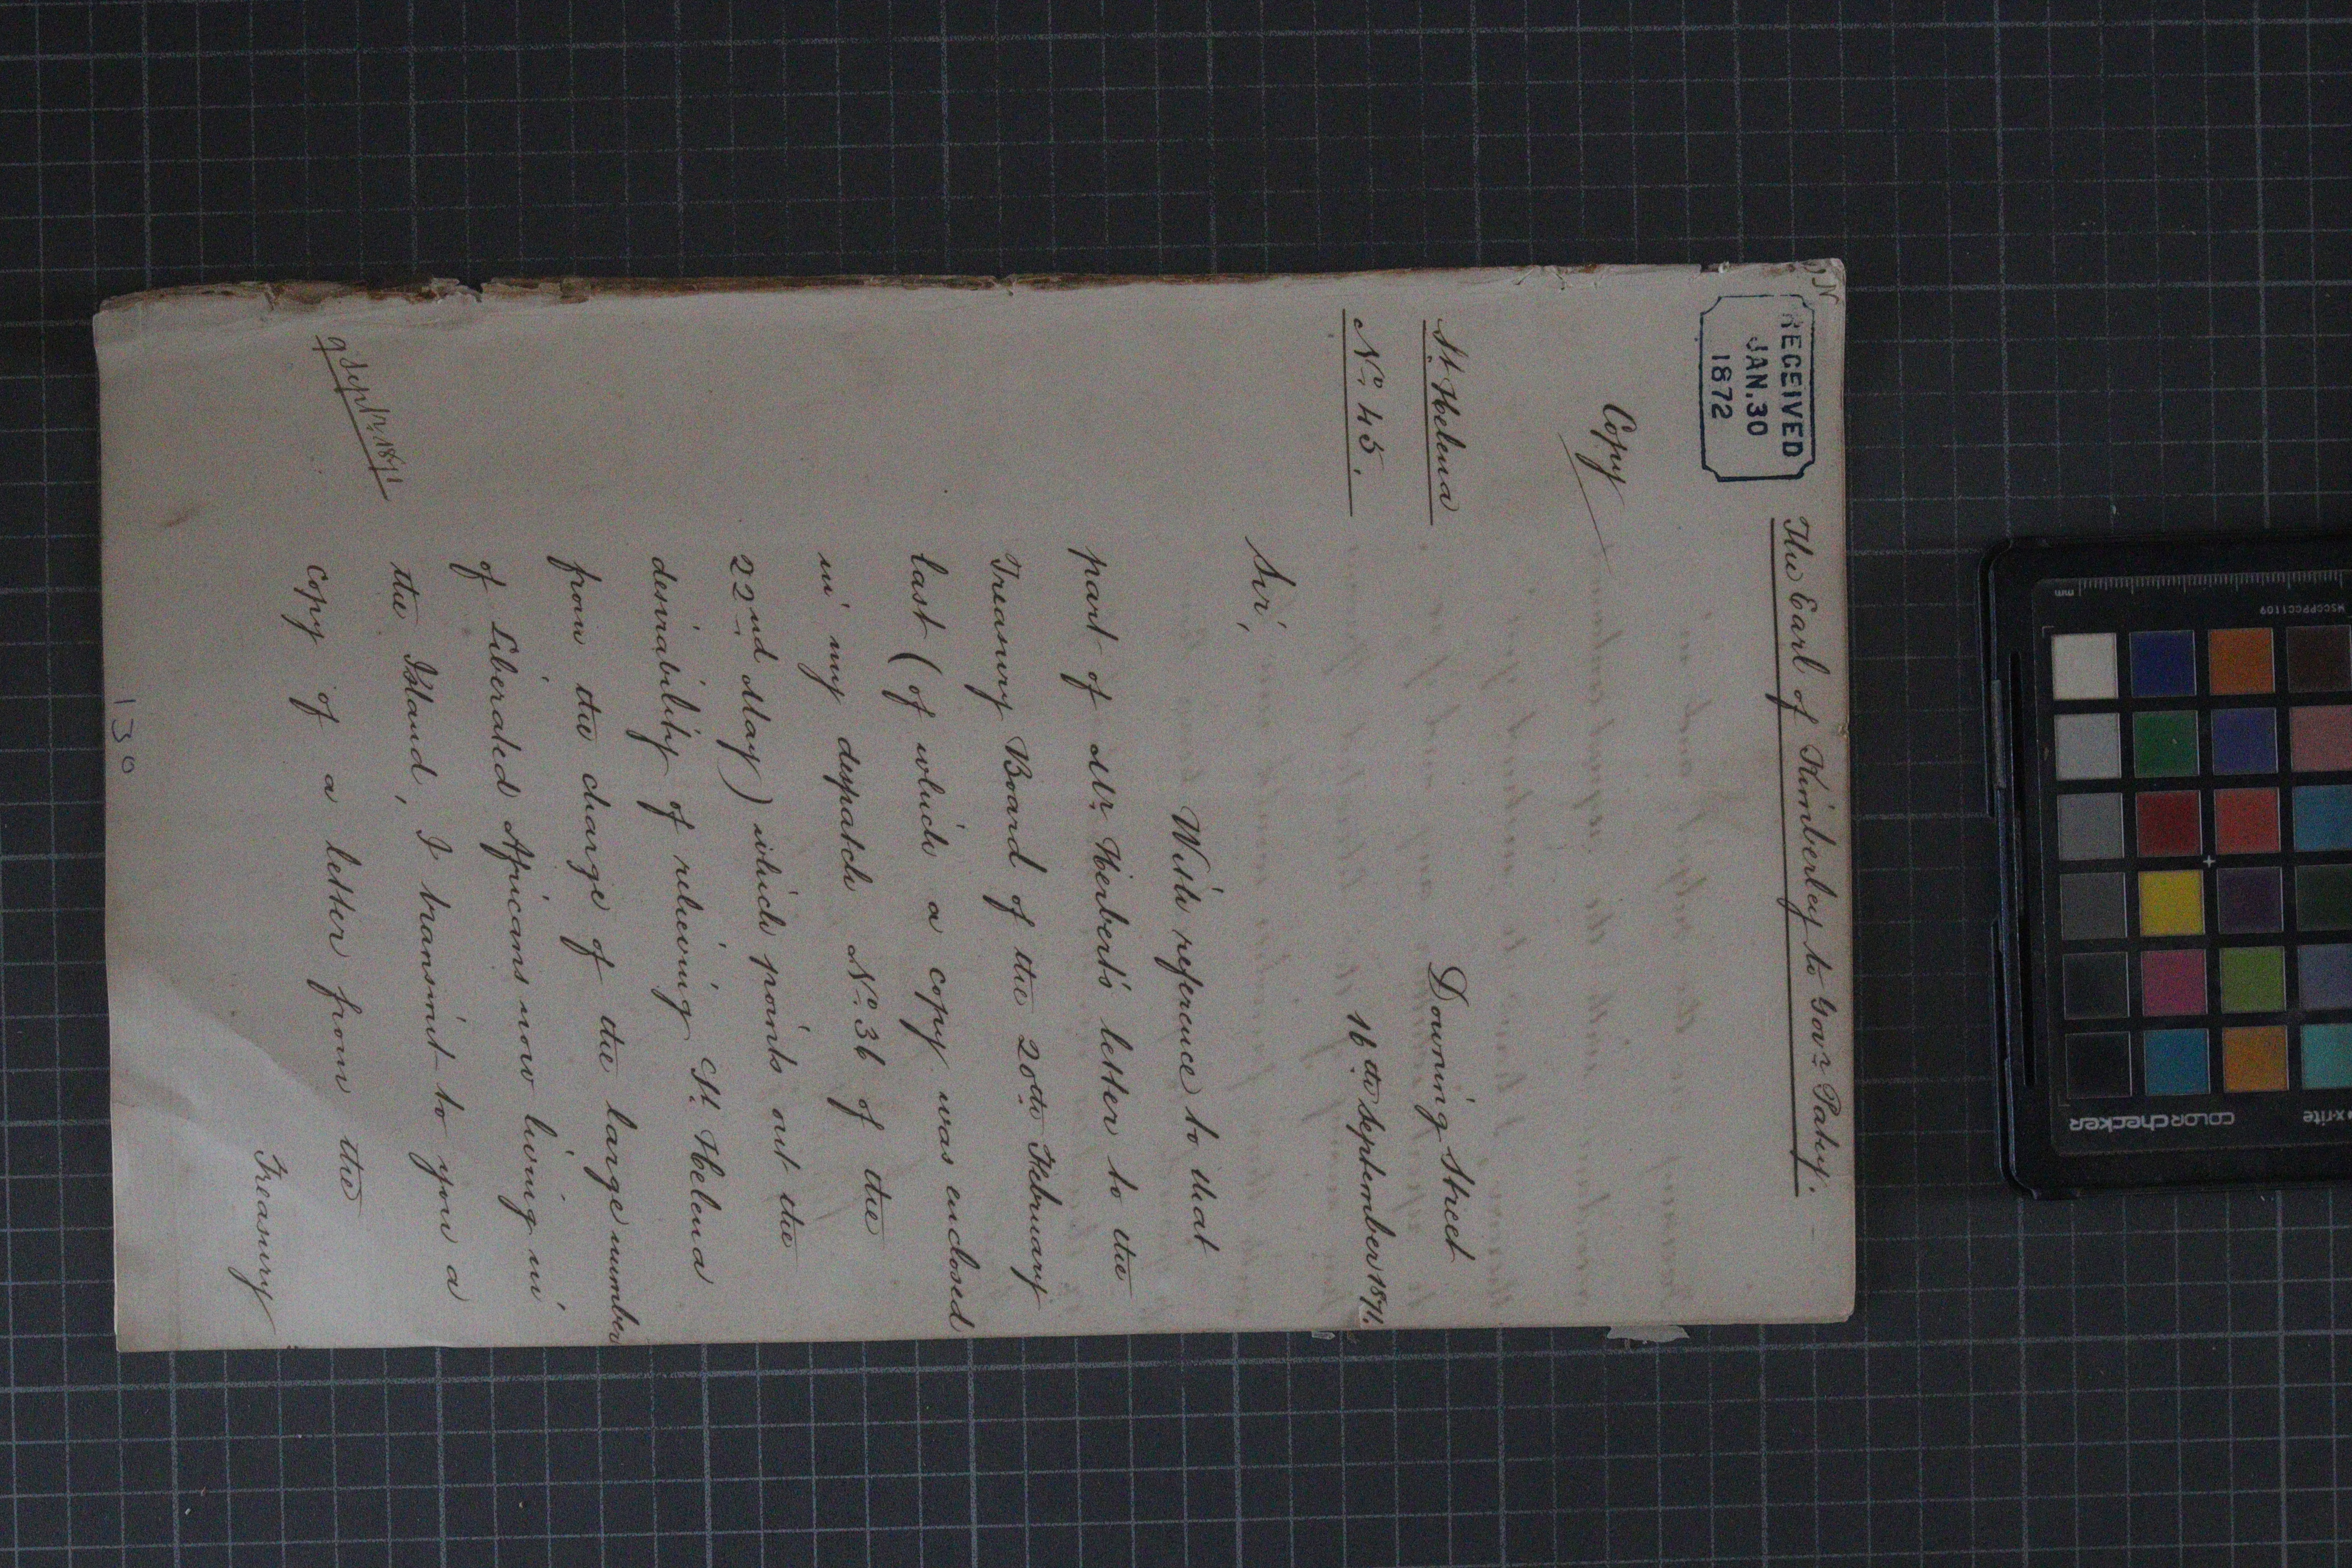 The Earl of Kimberley to Govr. Patey.
RECEIVED
JAN. 30
1872
Copy
St. Helena
No. 45.
Downing Street
16th September 1871.
Sir,
With reference to that
part of Mr. Herbert's letter to the
Treasury Board of the 20th February
last (of which a copy was enclosed
in my despatch No. 36 of the
22nd May) which points out the
desirability of relieving St. Helena
from the charge of the large number
of Liberated Africans now living in
the Island, I transmit to you a
9 Septr. 1871
copy of a letter from the
Treasury
130
mm
MSCCPPCC1109
x-rite
colorchecker